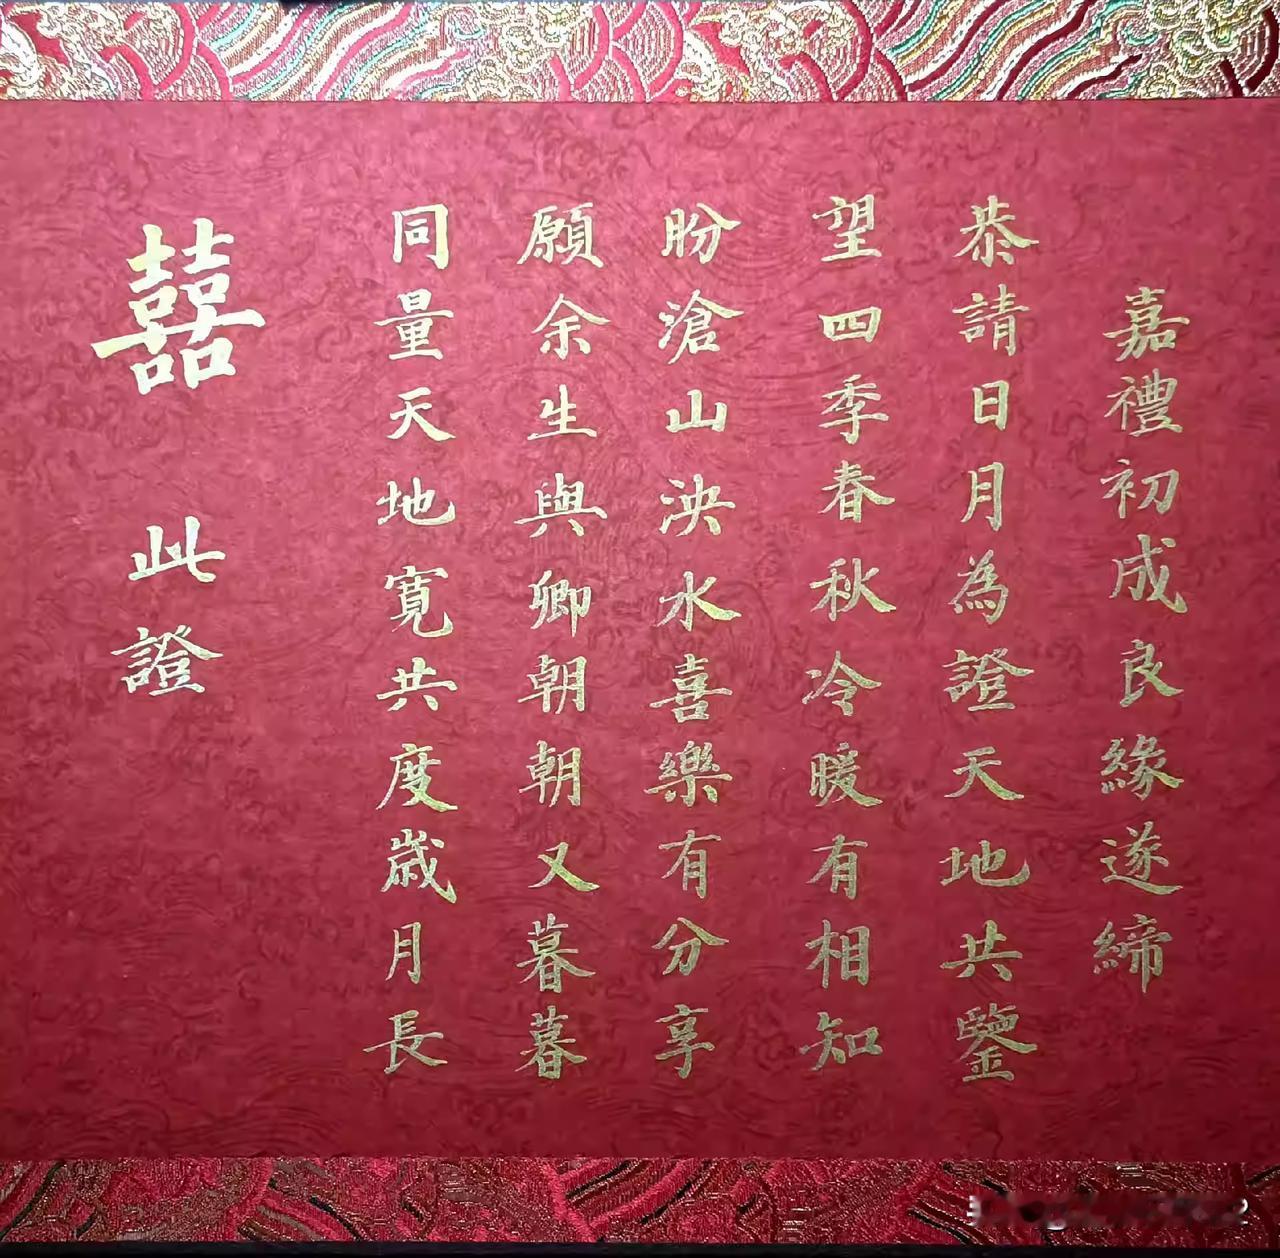 嘉禮初成良緣遂締
恭請日月為證天地共鑒
望四季春秋冷暖有相知
盼滄山泱水喜樂有分享
願余生與卿朝朝又暮暮
同量天地寬共度歲月長
囍
此證